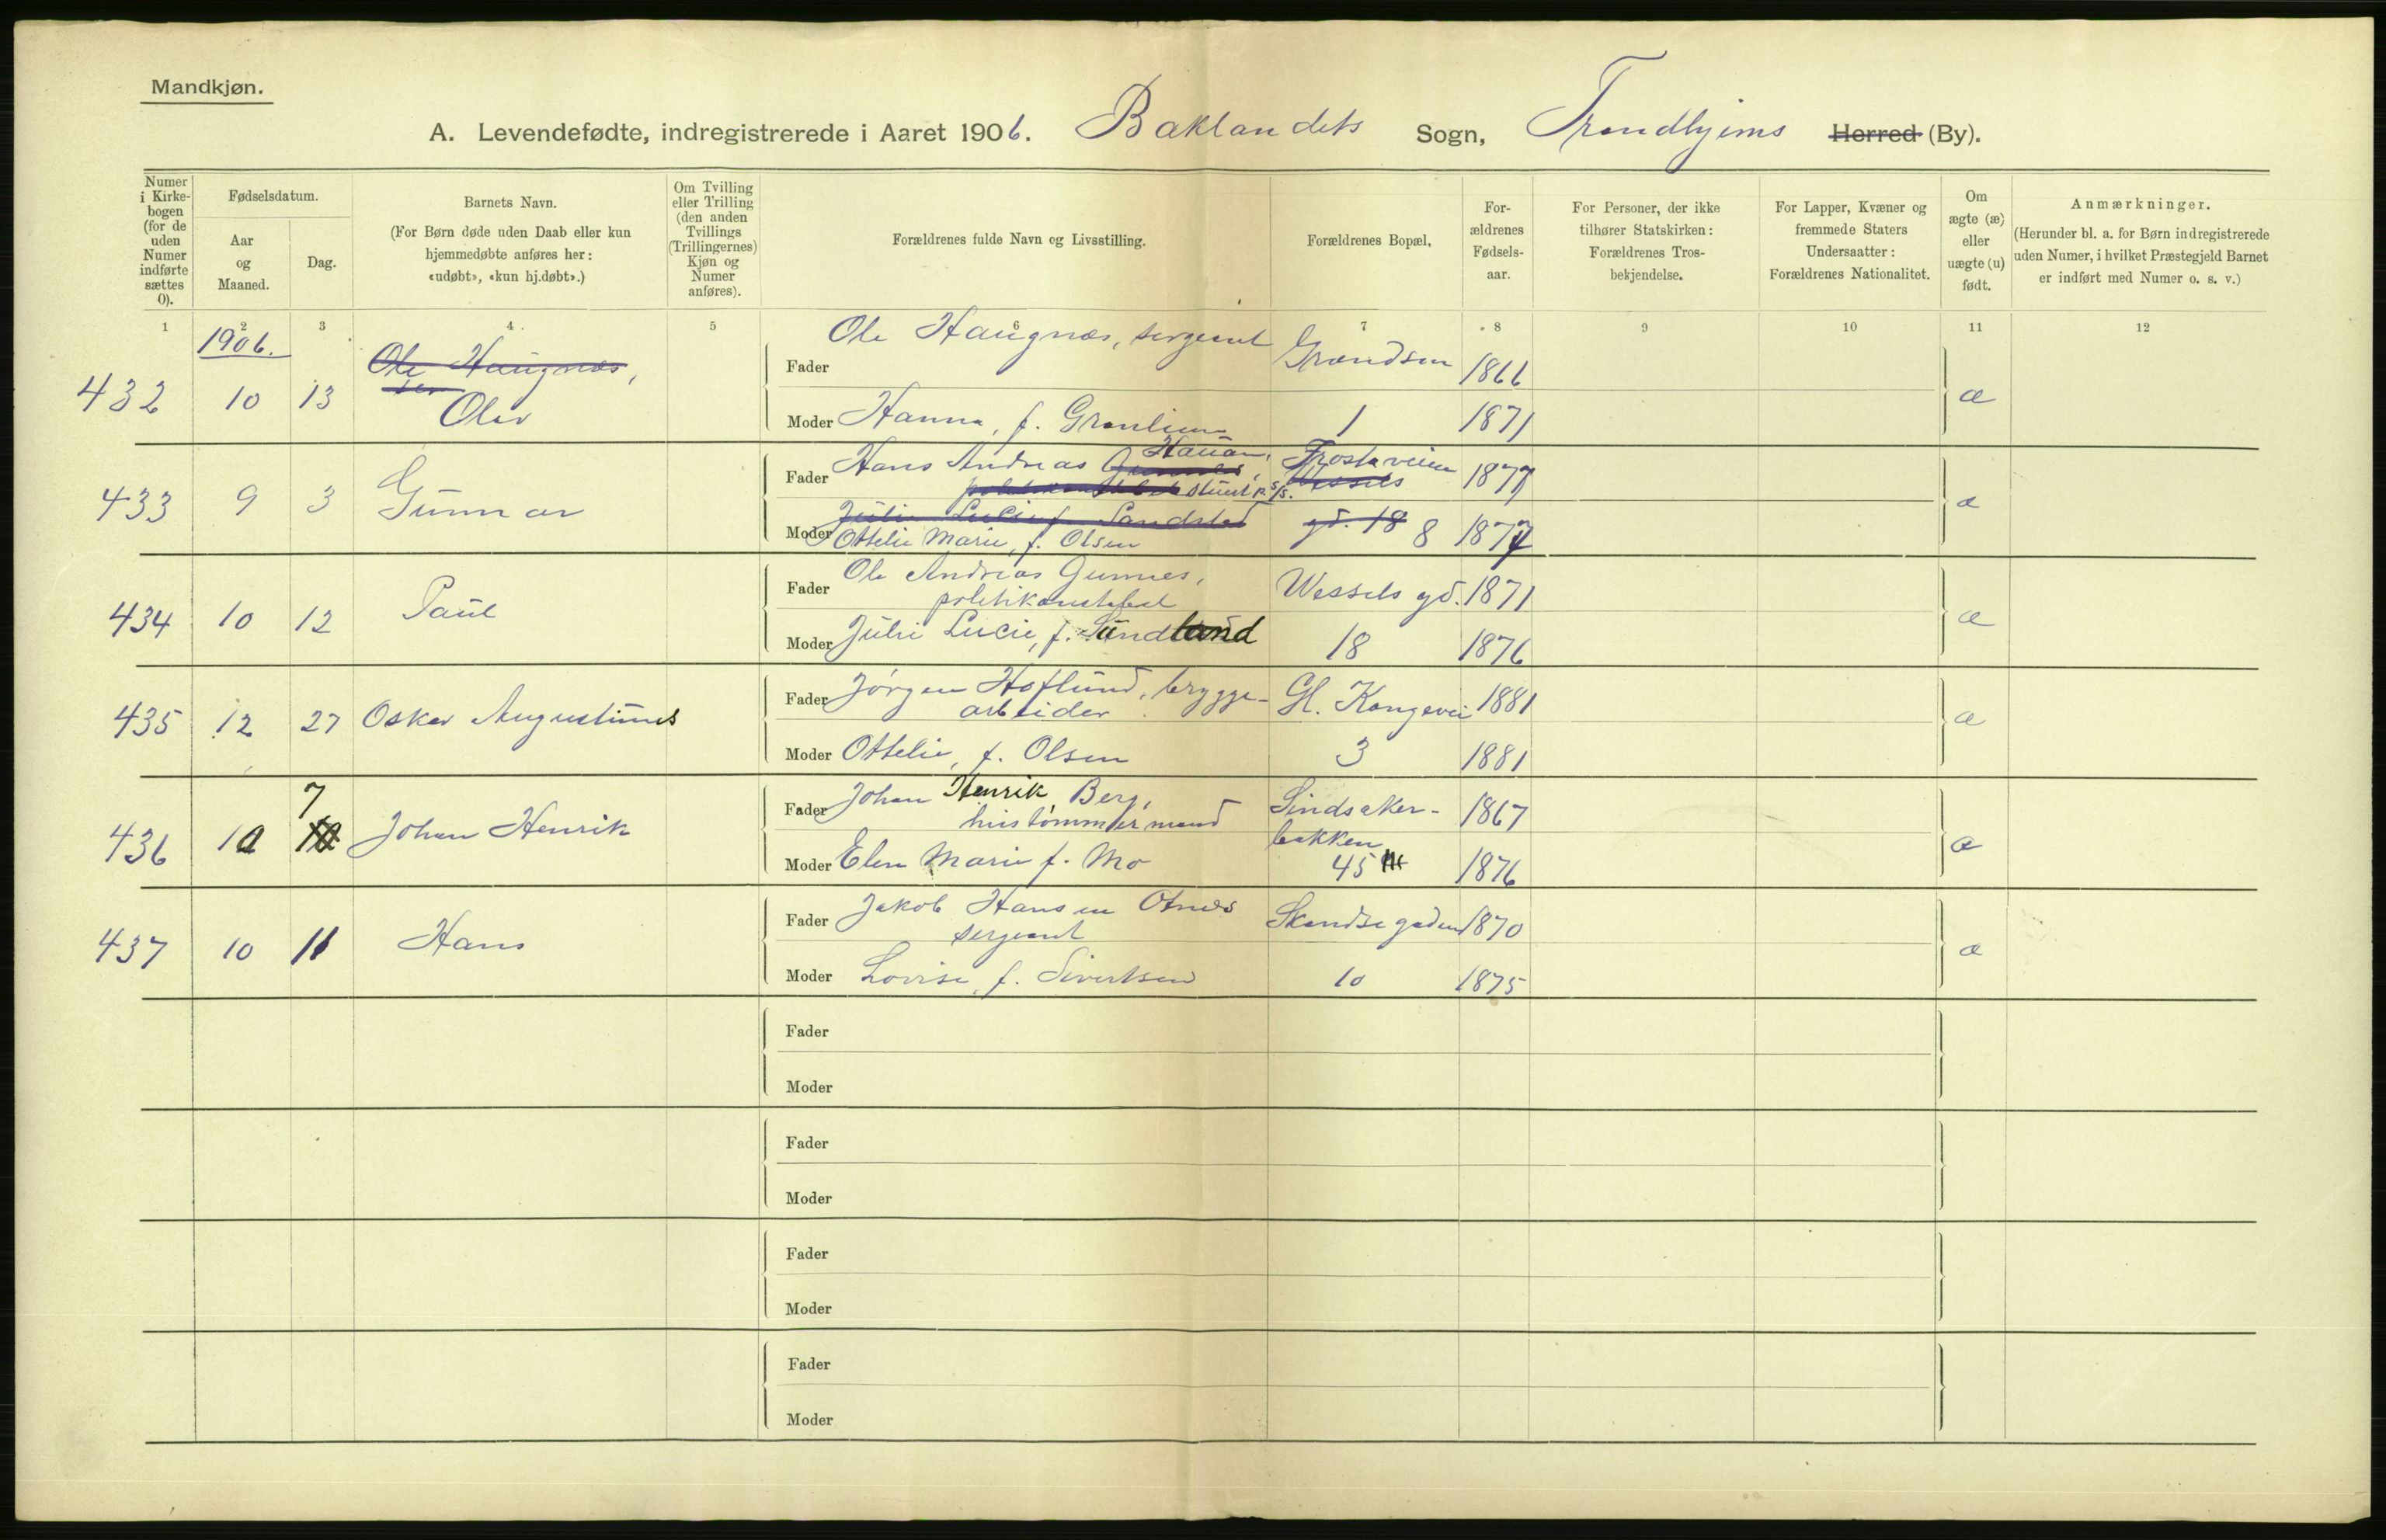 Mandkjøn.
A. Levendefødte, indregistrerede i Aaret 1906. Baklandets Sogn, Trondhjems Herred (By).
Numer i Kirke-bogen (for de uden Numer indførte sættes 0).
Fødselsdatum.
Aar og Maaned.
Dag.
Barnets Navn.
(For Børn døde uden Daab eller kun hjemmedøbte anføres her: «udøbt», «kun hj.døbt».)
Om Tvilling eller Trilling (den anden Tvillings (Trillingernes) Kjøn og Numer anføres).
Forældrenes fulde Navn og Livsstilling.
Forældrenes Bopæl,
For-ældrenes Fødsels-aar.
For Personer, der ikke tilhører Statskirken: Forældrenes Tros-bekjendelse.
For Lapper, Kvæner og fremmede Staters Undersaatter: Forældrenes Nationalitet.
Om ægte (æ) eller uægte (u) født.
Anmærkninger.
(Herunder bl. a. for Børn indregistrerede uden Numer, i hvilket Præstegjeld Barnet er indført med Numer o. s. v.)
1 2 3 4 5 6 7 8 9 10 11 12
1906.
432 10 13 Ole Haugnæs, Olav
Fader Ole Haugnæs, sergeant Grændsen 1866 æ
Moder Hanna, f. Grønlien 1 1871
433 9 3 Gunnar
Fader Hans Andreas Gunnes, Hauan, Frostaveien Wessels 1877 æ
politikonstabel stuert p. s/s.
Moder Julie Lucie f. Sandstad gd. 18 8 1877
Ottelie Marie, f. Olsen
434 10 12 Paul
Fader Ole Andreas Gunnes, Wessels gd. 1871 æ
politikonstabel
Moder Julie Lucie, f. Sundland 18 1876
435 12 27 Oskar Augustinus
Fader Jørgen Hoflund, brygge- Gl. Kongevei 1881 æ
arbeider
Moder Ottelie, f. Olsen 3 1881
7
436 10 Johan Henrik
Fader Johan Henrik Berg, Sindsaker- 1867 æ
hustømmermand bakken
Moder Elen Marie f. Mo 45 1876
437 10 11 Hans
Fader Jakob Hansen Otnes Skandsegaden 1870 æ
sergeant
Moder Lovise, f. Sivertsen 10 1875
Fader
Moder
Fader
Moder
Fader
Moder
Fader
Moder